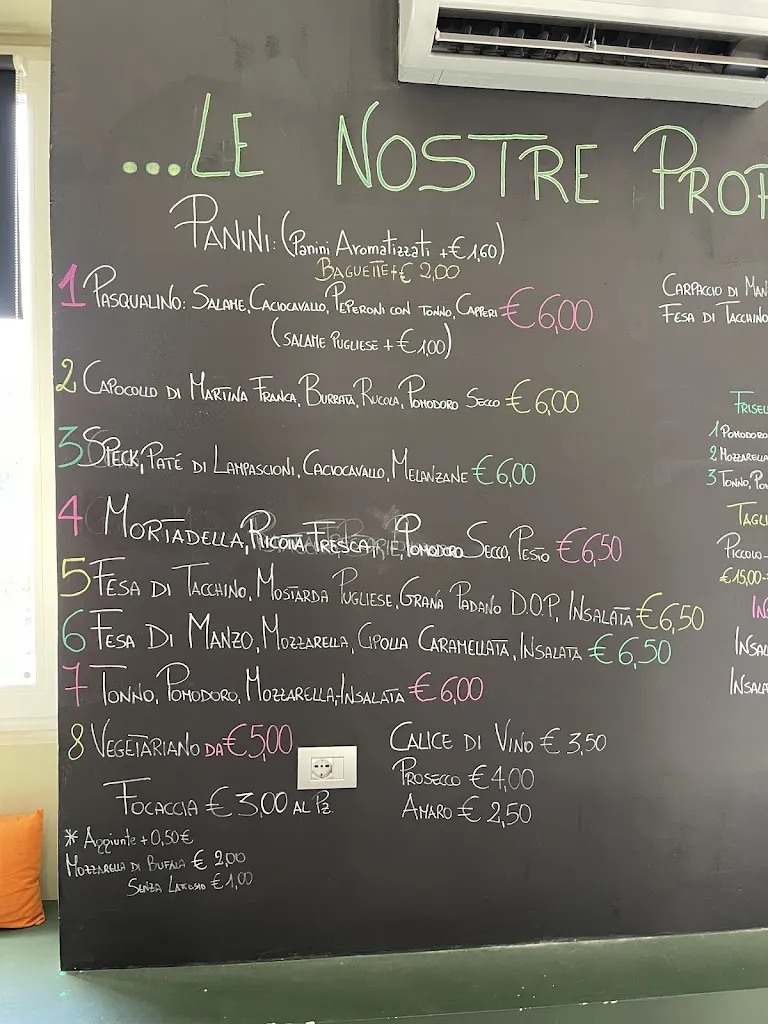 ...LE NOSTRE PROP
PANINI: (Panini Aromatizzati +€1,60)
BAGUETTE+€ 2,00
1 PASQUALINO: SALAME, CACIOCAVALLO, PEPERONI CON TONNO, CAPPERI €6,00
(SALAME PUGLIESE + €1,00)
2 CAPOCOLLO DI MARTINA FRANCA, BURRATA, RUCOLA, POMODORO SECCO €6,00
3 SPECK, PATÉ DI LAMPASCIONI, CACIOCAVALLO, MELANZANE €6,00
4 MORTADELLA, RICOTTA FRESCA, POMODORO SECCO, PESTO €6,50
5 FESA DI TACCHINO, MOSTARDA PUGLIESE, GRANA PADANO D.O.P, INSALATA €6,50
6 FESA DI MANZO, MOZZARELLA, CIPOLLA CARAMELLATA, INSALATA €6,50
7 TONNO, POMODORO, MOZZARELLA, INSALATA €6,00
8 VEGETARIANO DA €5,00
FOCACCIA €3,00 AL PZ.
* Aggiunte +0,50€
MOZZARELLA DI BUFALA € 2,00
SENZA LATTOSIO €1,00
CALICE DI VINO € 3,50
PROSECCO €4,00
AMARO € 2,50
CARPACCIO DI MAN
FESA DI TACCHINO
FRISEL
1 POMODORO
2 MOZZARELLA
3 TONNO, POM
TAGLI
PICCOLO-
€15,00-
INS
INSAL
INSALAT